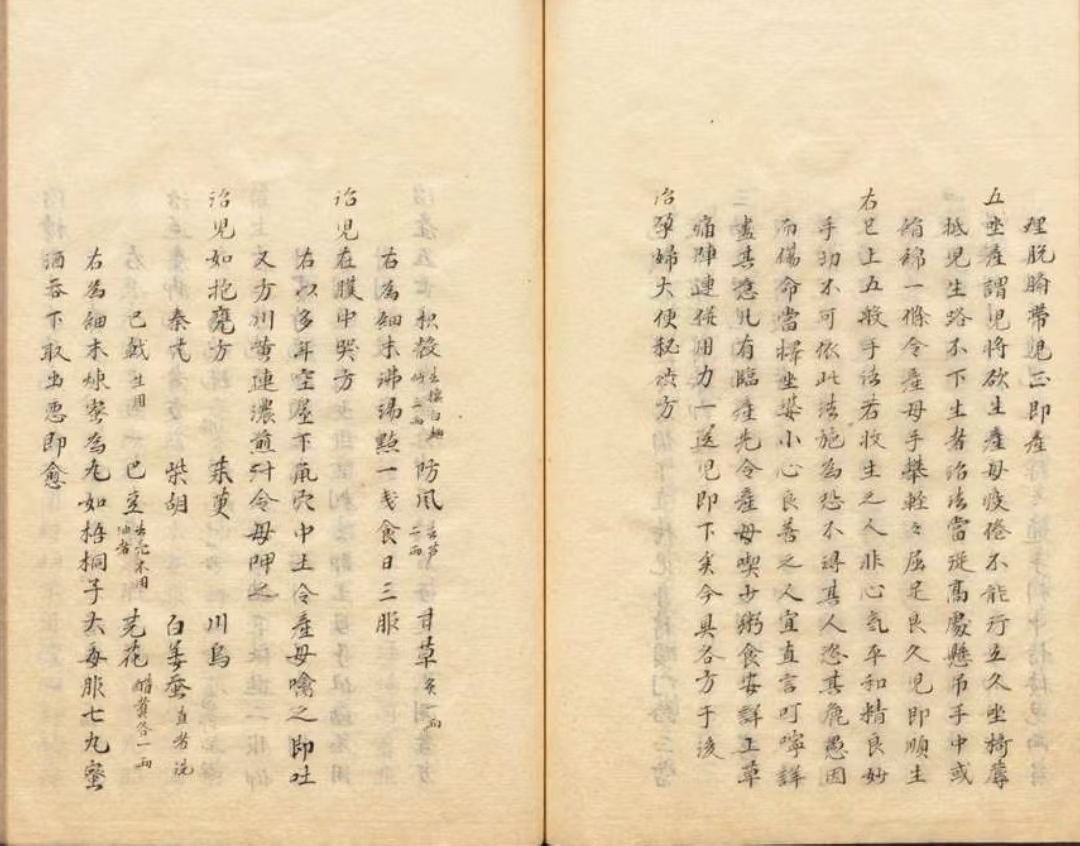 理脫臍帶児正即產
五坐產謂児將欲生產母疲倦不能行立久坐椅蓐
抵児生路不下生者治法當從高處懸吊手中或
絹綿一條令產母手攀輕々屈足良久児即順生
右足上五般手法若收生之人非心气平和精良妙
手切不可依此法施為恐不得其人恣其麄愚因
而傷命當擇坐婆小心良善之人宜直言叮嚀詳
盡其意凡有臨產先令產母喫少粥食安詳上草
痛陣連併用力一送児即下矣今具各方于後
治孕婦大便秘澁方
枳殼去穰白麺 防風去芦二兩 甘草炙一兩
右為細末沸湯㸃一戔食日三服
治児在腹中哭方
右以多年空屋下鼠穴中土令產母噙之即吐
又方川黃連濃煎汁令母呷之
治児如抱甕方 茱萸 川烏
秦艽 柴胡 白姜蚕直者洗
巴戟生用 巴豆去壳不用油者 芫花醋煑各一兩
右為細末煉蜜為丸如梧桐子大每服七丸蜜
酒吞下取出惡即愈